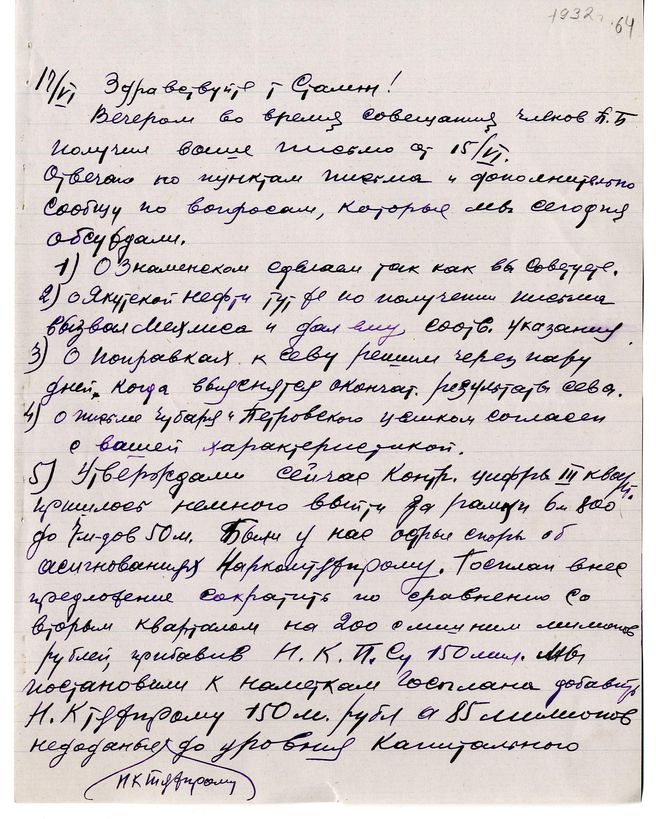 1932 г. 64
17/VI Здравствуйте т Сталин!
Вечером во время совещания членов П.Б
получил ваше письмо от 15/VI.
Отвечаю по пунктам письма и дополнительно
сообщу по вопросам, которые мы сегодня
обсуждали.
1) О Знаменском сделаем так как вы советуете.
2) о Якутской нефти тут же по получении письма
вызвал Мехлиса и дал ему, соотв. указания
3) О поправках к севу решим через пару
дней, когда выяснятся окончат. результаты сева.
4) о письме Чубаря и Петровского целиком согласен
с вашей характеристикой.
5) Утверждали сейчас контр. цифры III кварт.
пришлось немного выйти за рамки 6м 800
до 7м-дов 50м. Были у нас острые споры об
асигнованиях Наркомтяжпрому. Госплан внес
предложение сократить по сравнению со
вторым кварталом на 200 слишним милионов
рублей, прибавив Н.К.П.Су 150мил. Мы
постановили к наметкам Госплана добавить
Н.К тяжпрому 150м. рубл а 85 милионов
недоданые до уровня капитального
НКтяжпрому